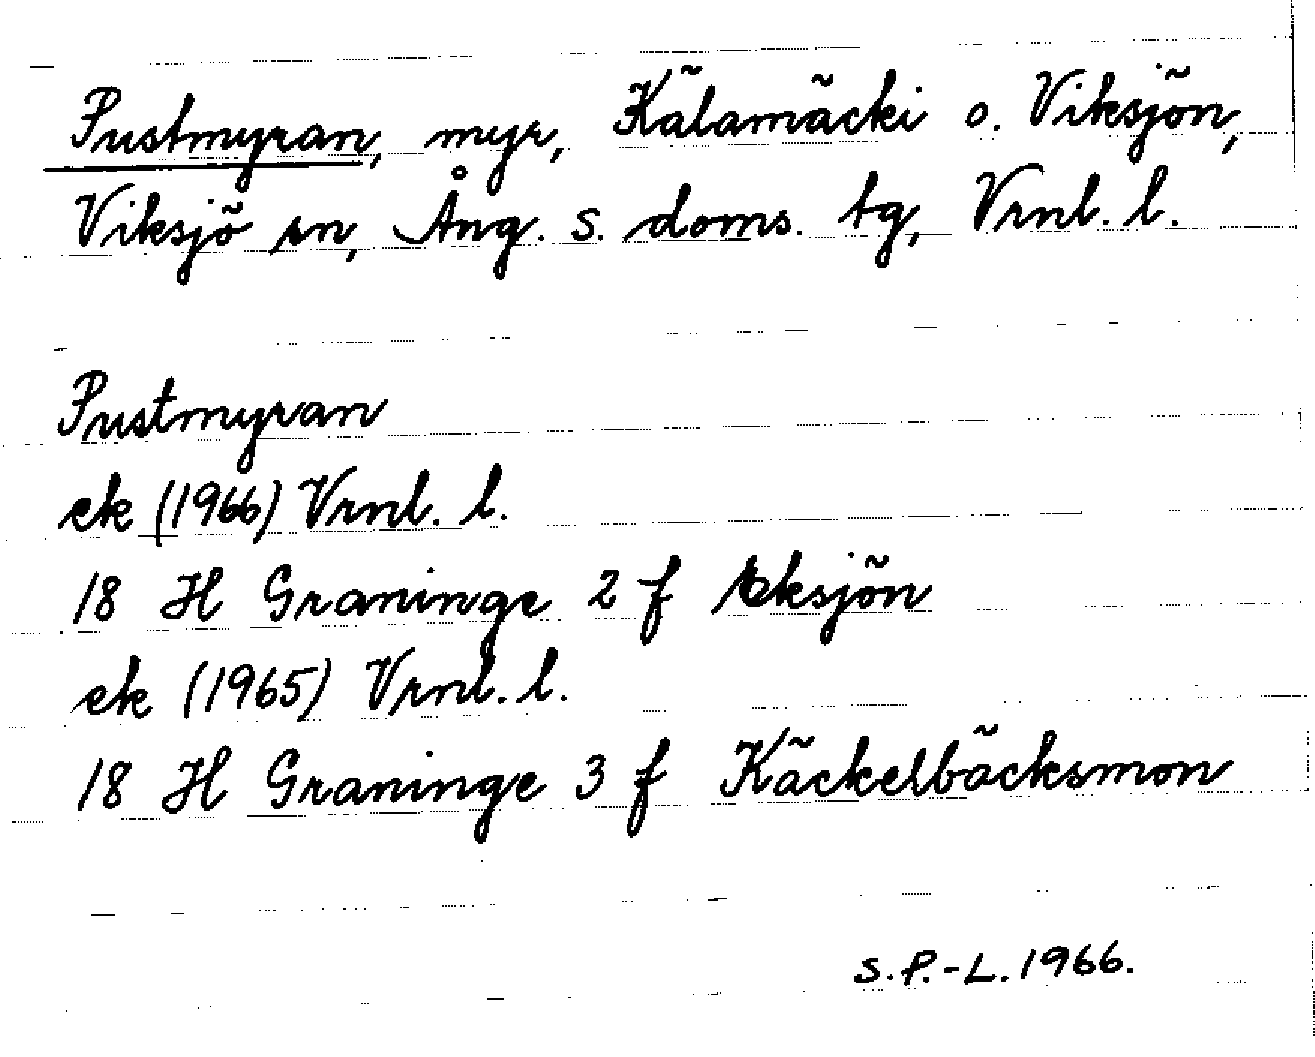 Pustmyran, myr, Kälamäcki o. Viksjön,
Viksjö sn, Ång. s. doms. tg, Vrnl. l.
Pustmyran
ek (1966) Vrnl. l.
18 H Graninge 2 f Eksjön
ek (1965) Vrnl. l.
18 H Graninge 3 f Käckelbäcksmon
S.P.-L. 1966.